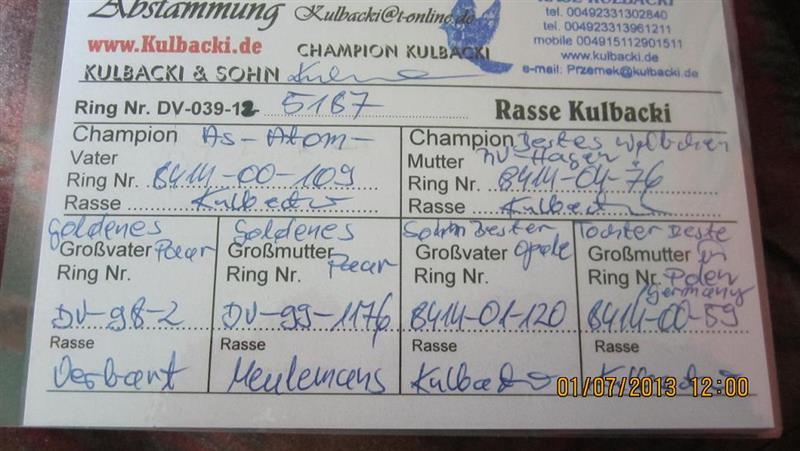 Abstammung Kulbacki@t-online.de
RASSE KULBACKI
tel. 004923331302840
tel. 004923313961211
www.Kulbacki.de
CHAMPION KULBACKI
mobile 004915112901511
www.kulbacki.de
e-mail: Przemek@kulbacki.de
KULBACKI & SOHN
Ring Nr. DV-039-12 5187
Rasse Kulbacki
Champion As-Atom-
Vater
Ring Nr. 8414-00-109
Rasse Kulbacki
Champion Bestes Weibchen
Mutter
Ring Nr. 8414-04-76
Rasse Kulbacki
Goldenes
Großvater Paar
Ring Nr.
DV-98-2
Rasse
Verbart
Goldenes
Großmutter Paar
Ring Nr.
DV-99-1176
Rasse
Meulemans
Sohn Bester
Großvater
Ring Nr.
8414-01-120
Rasse
Kulbacki
Tochter Beste
Großmutter in
Ring Nr. Polen
/Germany
8414-00-59
Rasse
Kulbacki
01/07/2013 12:00